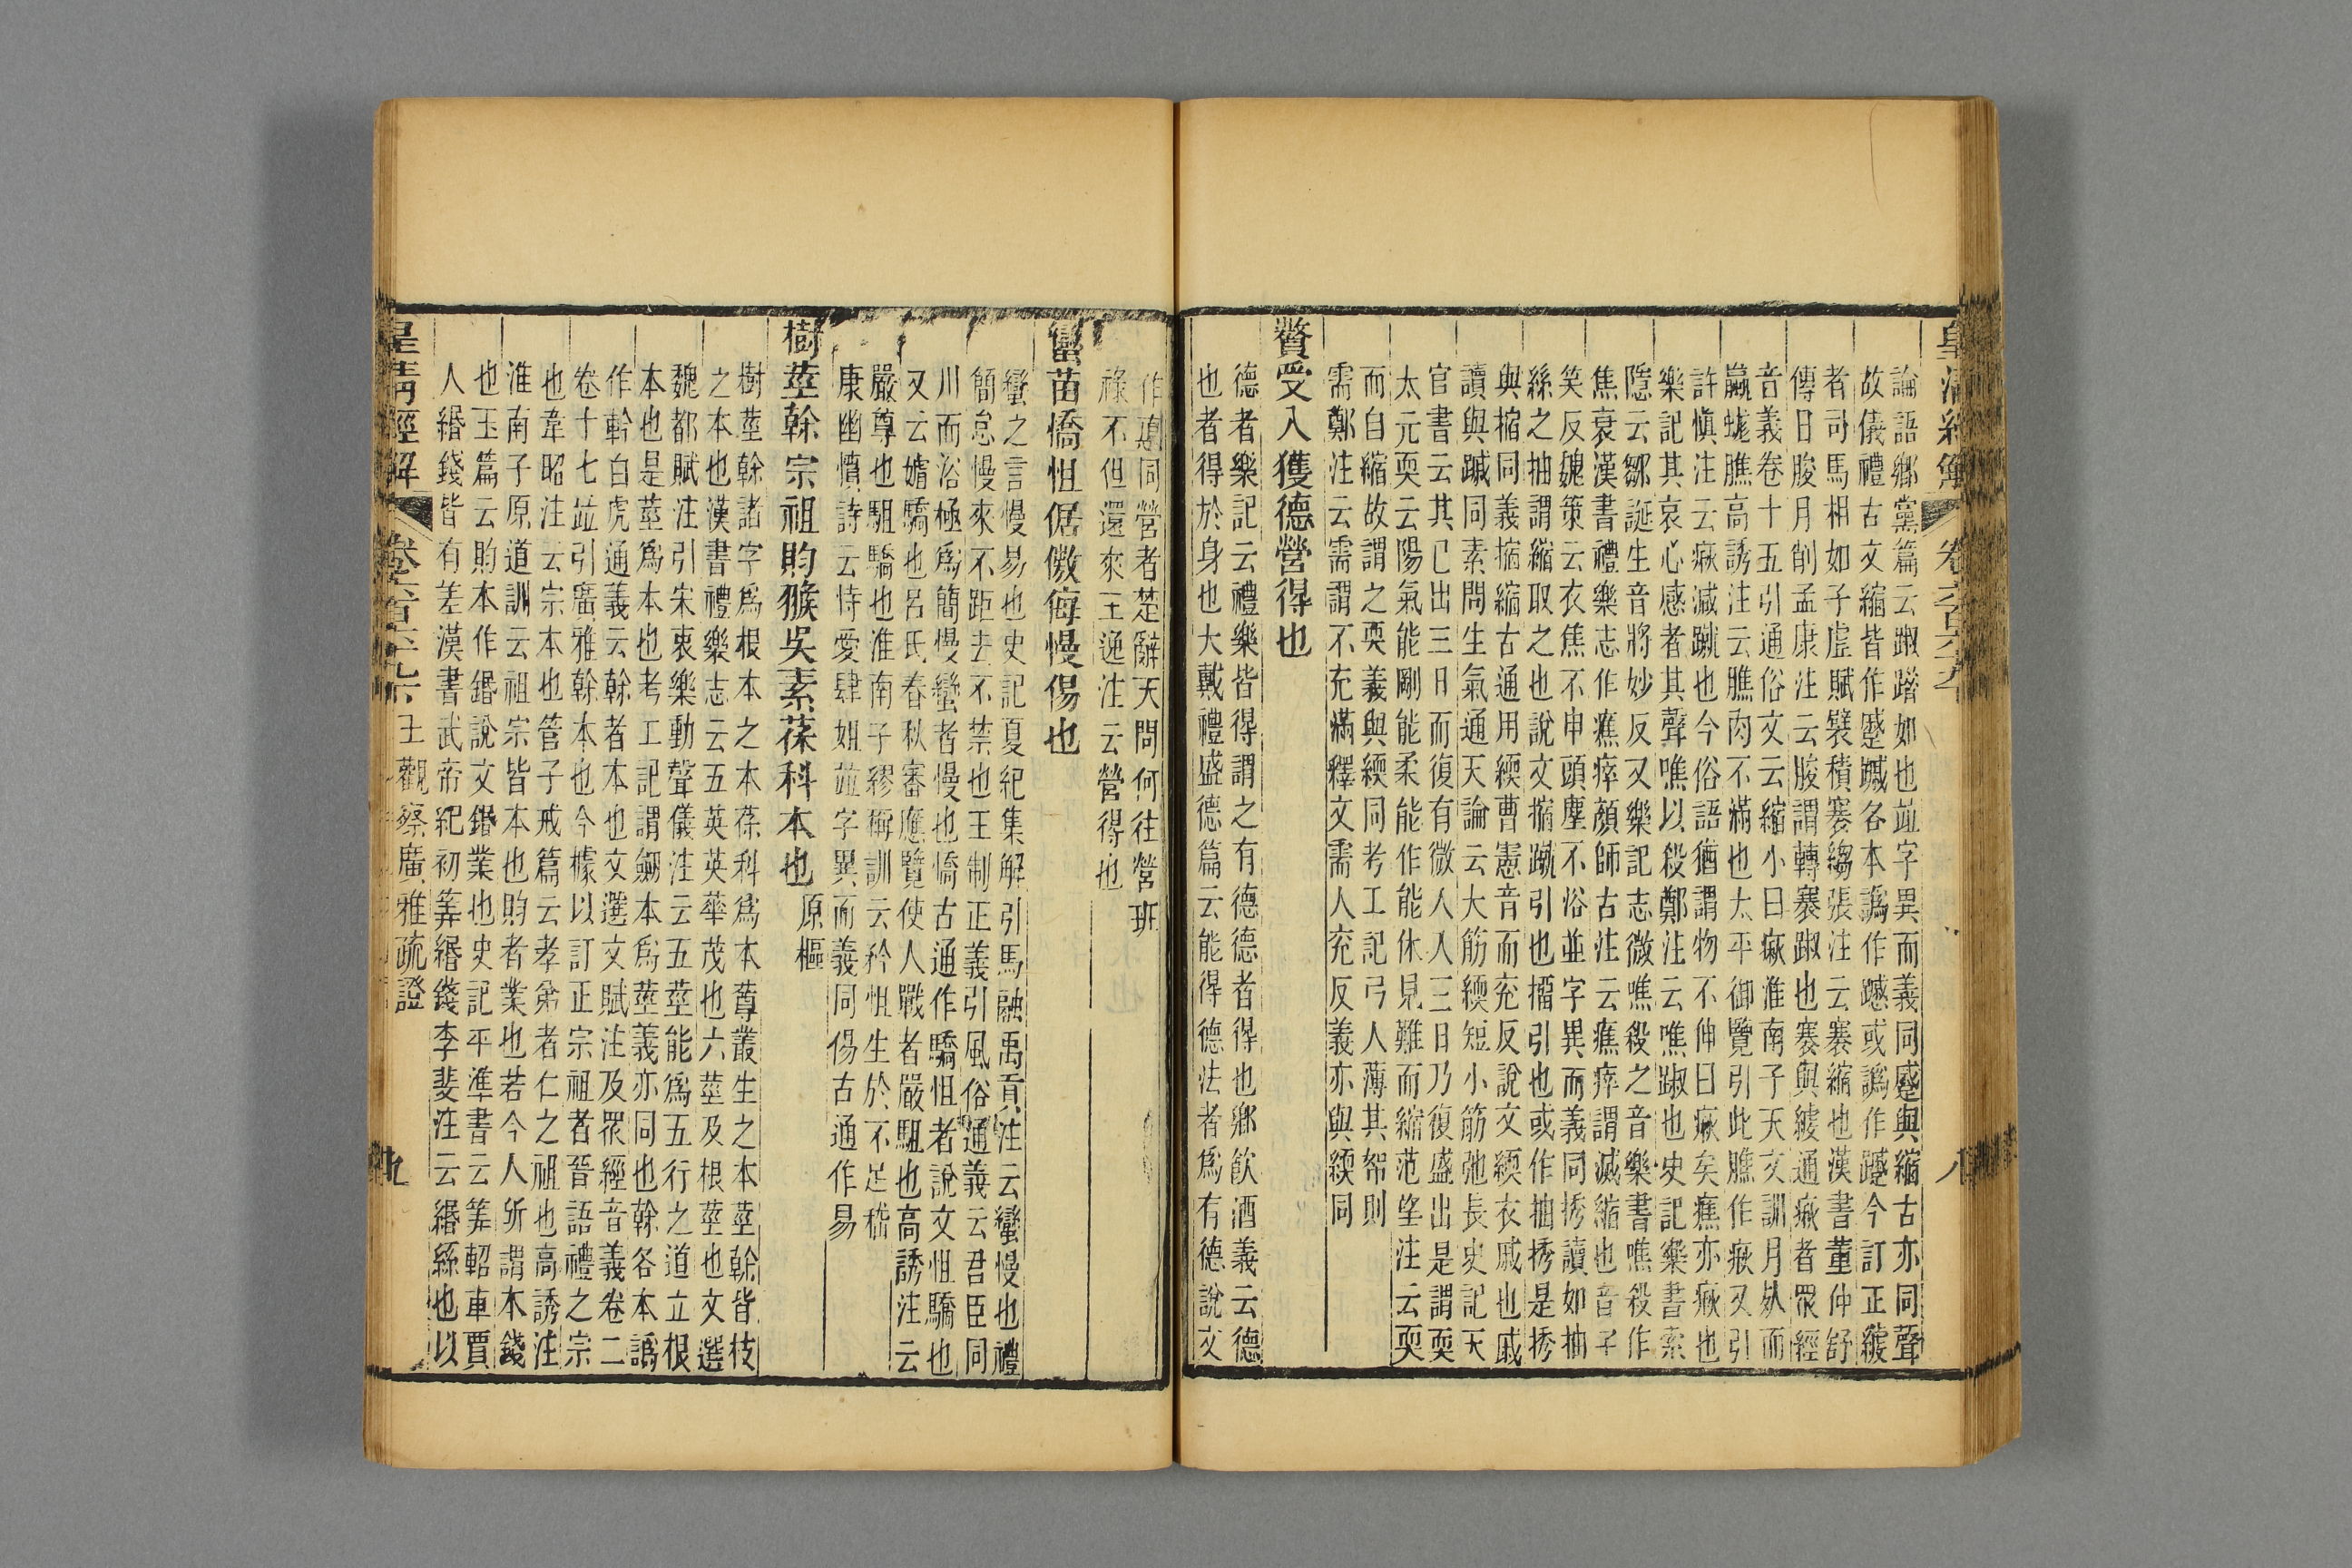 皇清經解
卷六百六十九
八
論語鄉黨篇云踧踖如也竝字異而義同蹙與縮古亦同聲
故儀禮古文縮皆作蹙蹴各本譌作蹴或譌作蹙今訂正縐
者司馬相如子虛賦襞積褰縐張注云褰縮也漢書董仲舒
傳日朘月削孟康注云朘謂轉褰踧也褰與縐通瘷者眾經
音義卷十五引通俗文云縮小曰瘷淮南子天文訓月死而
蠃蛖膲高誘注云膲肉不滿也太平御覽引此膲作瘷又引
許慎注云瘷減蹴也今俗語猶謂物不伸曰瘷矣癄亦瘷也
樂記其哀心感者其聲噍以殺鄭注云噍踧也史記樂書索
隱云鄒誕生音將妙反又樂記志微噍殺之音樂書噍殺作
焦衰漢書禮樂志作癄瘁顏師古注云癄瘁謂減縮也音子
笑反魏策云衣焦不申頭塵不浴並字異而義同㩅讀如抽
絲之抽謂縮取之也說文摍蹴引也㩅引也或作抽㩅是㩅
與摍同義摍縮古通用緛曹憲音而兖反說文緛衣戚也戚
讀與蹴同素問生氣通天論云大筋緛短小筋弛長史記天
官書云其已出三日而復有微入入三日乃復盛出是謂耎
太元耎云陽氣能剛能柔能作能休見難而縮范望注云耎
而自縮故謂之耎義與緛同考工記弓人薄其帤則
需鄭注云需謂不充滿釋文需人兖反義亦與緛同
贅受入獲德營得也
德者樂記云禮樂皆得謂之有德德者得也鄉飲酒義云德
也者得於身也大戴禮盛德篇云能得德法者爲有德說文
作㥁同營者楚辭天問何往營班
祿不但還來王逸注云營得也
蠻苗憍怚倨傲侮慢傷也
蠻之言慢易也史記夏紀集解引馬融禹貢注云蠻慢也禮
簡怠慢來不距去不禁也王制正義引風俗通義云君臣同
川而浴極爲簡慢蠻者慢也憍古通作驕怚者說文怚驕也
又云婿驕也呂氏春秋審應覽使人戰者嚴駔也高誘注云
嚴尊也駔驕也淮南子繆稱訓云矜怚生於不足嵇
康幽憤詩云恃愛肆姐竝字異而義同傷古通作易
樹莖榦宗祖㫬猴吳素葆科本也
原樞
樹莖榦諸字爲根本之本葆科爲本蓴叢生之本莖榦皆枝
之本也漢書禮樂志云五英英華茂也六莖及根莖也文選
魏都賦注引宋衷樂動聲儀注云五莖能爲五行之道立根
本也是莖爲本也考工記謂劒本爲莖義亦同也榦各本譌
作幹白虎通義云榦者本也文選文賦注及眾經音義卷二
卷十七竝引廣雅榦本也今據以訂正宗祖者晉語禮之宗
也韋昭注云宗本也管子戒篇云孝弟者仁之祖也高誘注
淮南子原道訓云祖宗皆本也㫬者業也若今人所謂本錢
也玉篇云㫬本作鍲說文鍲業也史記平準書云筭軺車賈
人緡錢皆有差漢書武帝紀初筭緡錢李斐注云緡絲也以
皇清經解
卷六百六十九下
王觀察廣雅疏證
九